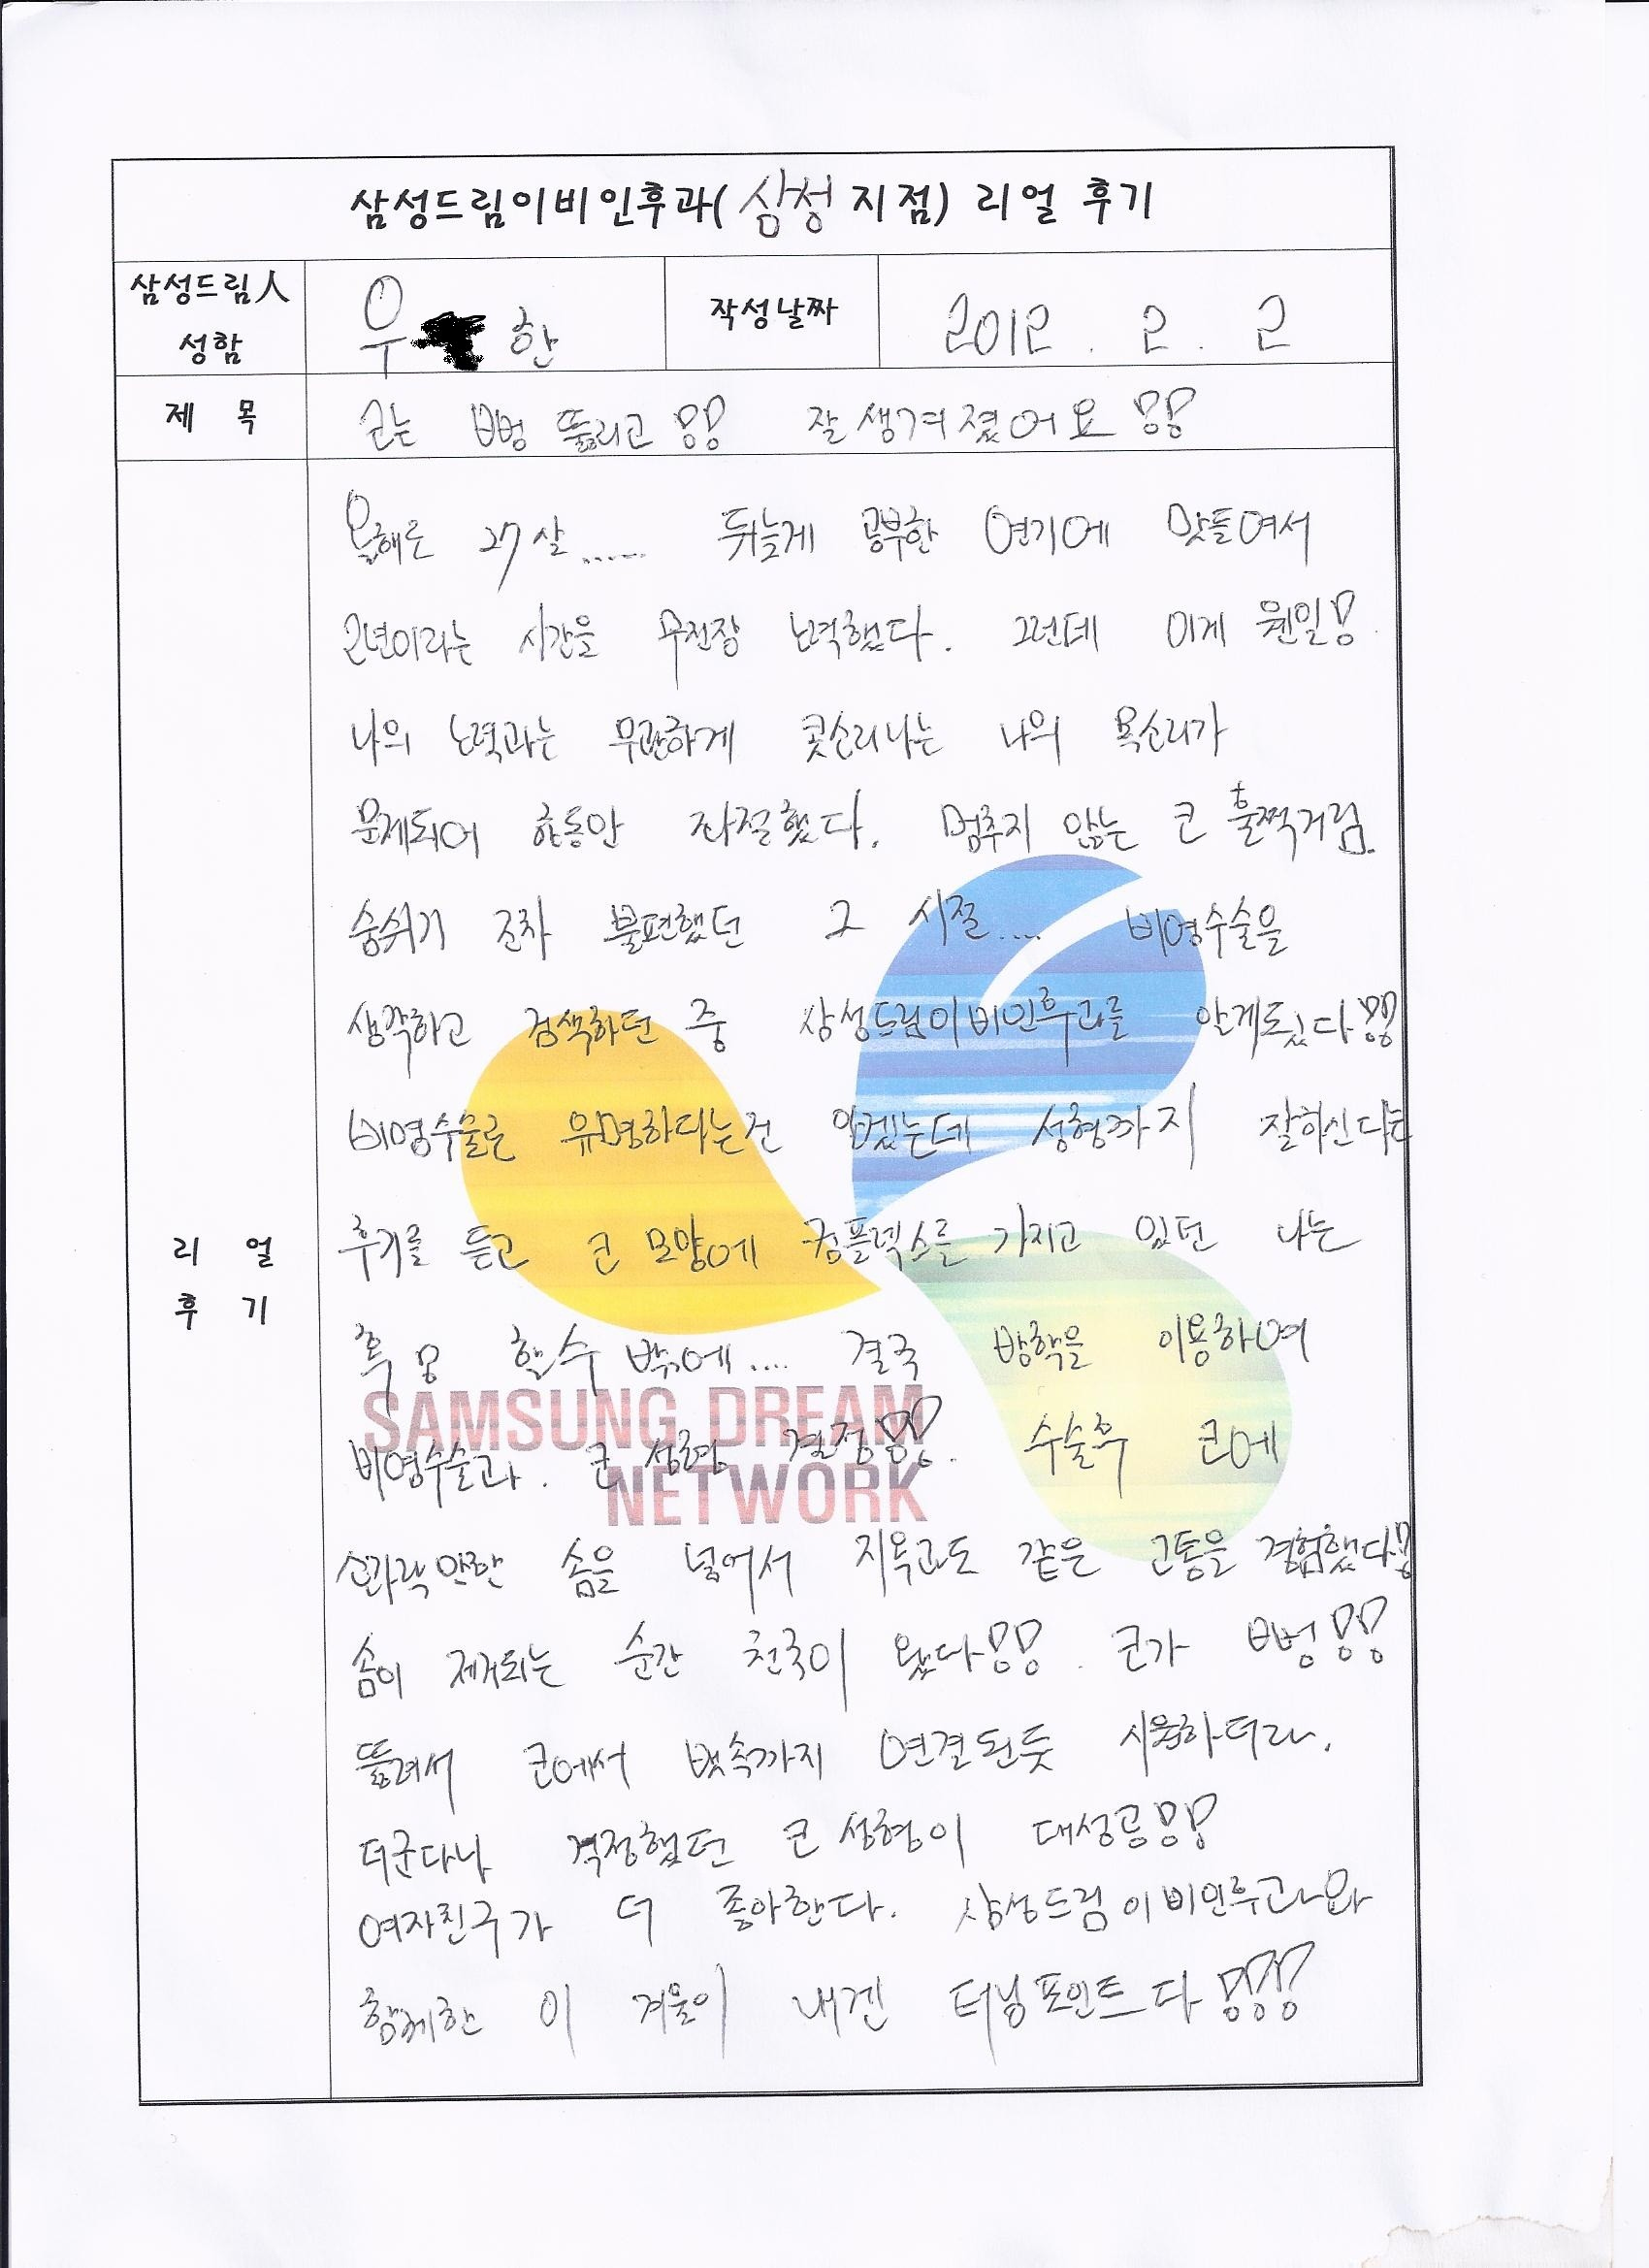 삼성드림이비인후과(삼성 지점) 리얼 후기
삼성드림人 성함
우 한
작성날짜
2012. 2. 2
제 목
코는 뻥 뚫리고!! 잘생겨졌어요!!
리 얼
후 기
올해로 27살...... 뒤늦게 공부한 연기에 맛들여서
2년이라는 시간을 무진장 노력했다. 그런데 이게 웬일!
나의 노력과는 무관하게 콧소리나는 나의 목소리가
문제되어 한동안 좌절했다. 멈추지 않는 코 훌쩍거림.
숨쉬기 조차 불편했던 그 시절.... 비염수술을
생각하고 검색하던 중 삼성드림이비인후과를 알게됬다!!
비염수술로 유명하다는건 알겠는데 성형까지 잘하신다는
후기를 듣고 코 모양에 컴플렉스를 가지고 있던 나는
혹! 할수 밖에.... 결국 방학을 이용하여
비염수술과. 코 성형 결정!!!. 수술후 코에
손가락만한 솜을 넣어서 지옥과도 같은 고통을 경험했다!!
솜이 제거되는 순간 천국이 왔다!!!. 코가 뻥!!!
뚫려서 코에서 뱃속까지 연결된듯 시원하더라.
더군다나 걱정했던 코 성형이 대성공!!!
여자친구가 더 좋아한다. 삼성드림이비인후과와
함께한 이 겨울이 내겐 터닝포인트다!!!!
SAMSUNG DREAM
NETWORK